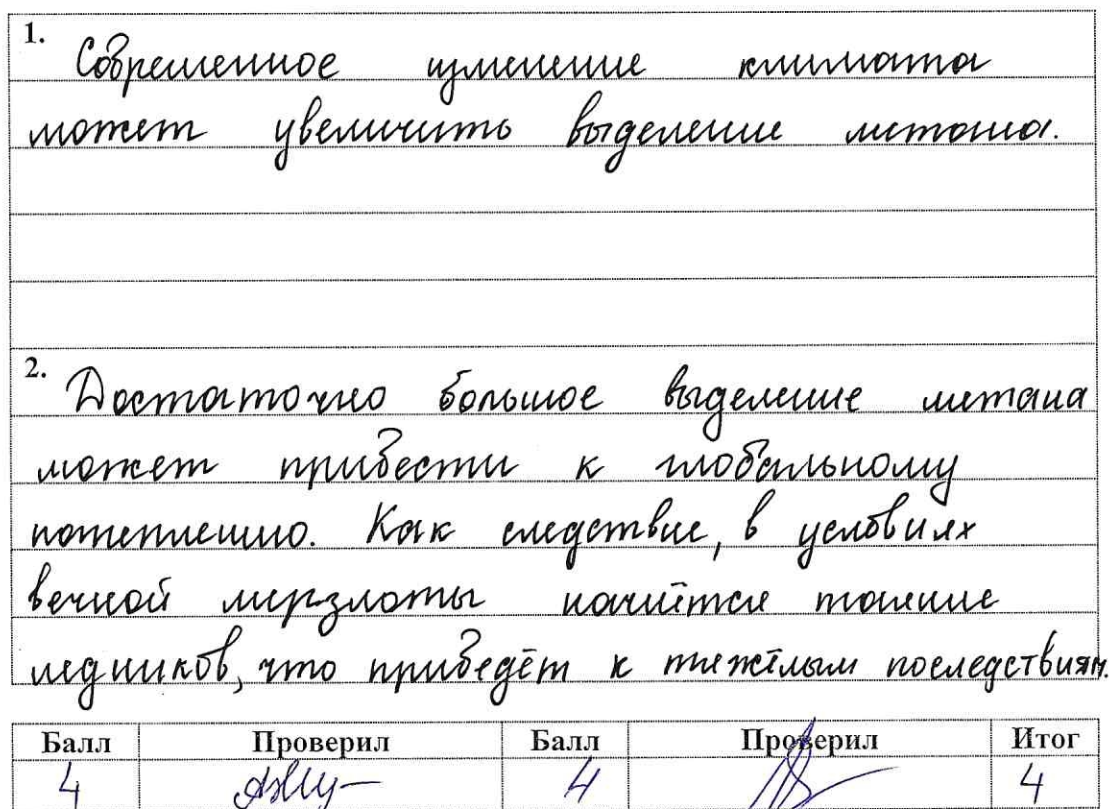 1. Современное изменение климата
может увеличить выделение метана.
2. Достаточно большое выделение метана
может привести к глобальному
потеплению. Как следствие, в условиях
вечной мерзлоты начнётся таяние
ледников, что приведёт к тяжёлым последствиям.
Балл Проверил Балл Проверил Итог
4 4 4